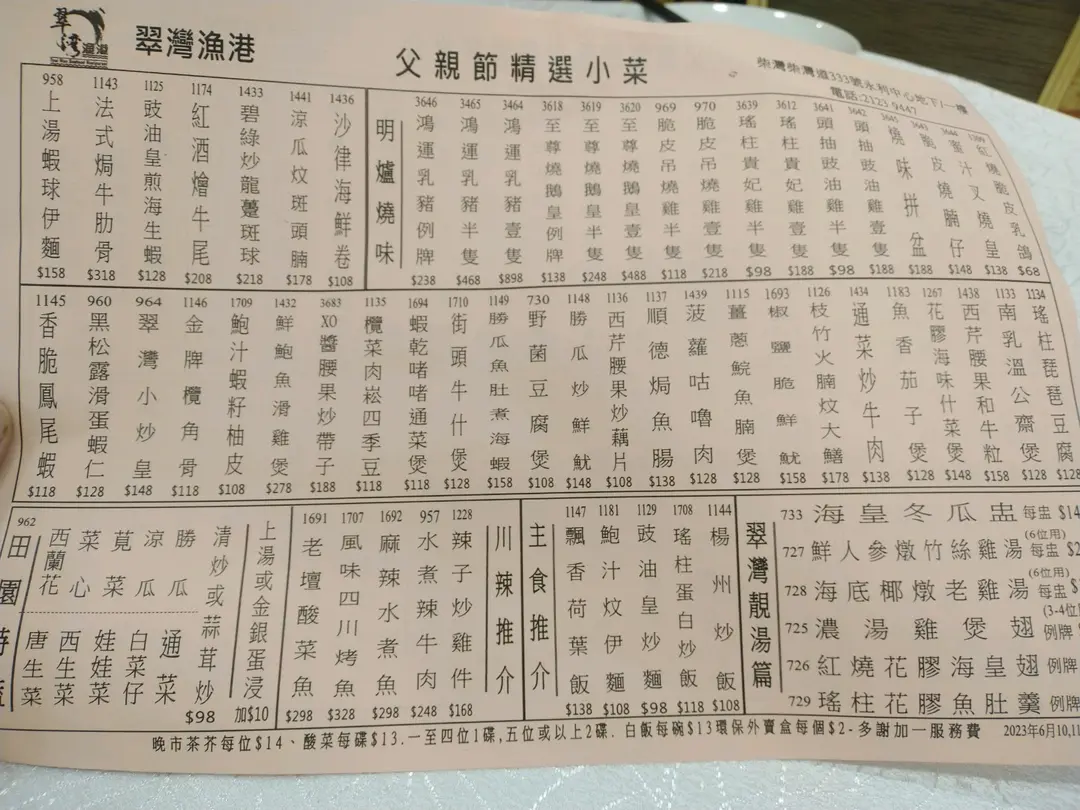 翠灣漁港
翠灣漁港
父親節精選小菜
柴灣柴灣道333號永利中心地下/一樓
電話:2123 9447
958 上湯蝦球伊麵 $158
1143 法式焗牛肋骨 $318
1125 豉油皇煎海生蝦 $128
1174 紅酒燴牛尾 $208
1433 碧綠炒龍躉斑球 $218
1441 涼瓜炆斑頭腩 $178
1436 沙律海鮮卷 $108
明爐燒味
3646 鴻運乳豬例牌 $238
3465 鴻運乳豬半隻 $468
3464 鴻運乳豬壹隻 $898
3618 至尊燒鵝皇例牌 $138
3619 至尊燒鵝皇半隻 $248
3620 至尊燒鵝皇壹隻 $488
969 脆皮吊燒雞半隻 $118
970 脆皮吊燒雞壹隻 $218
3639 瑤柱貴妃雞半隻 $98
3612 瑤柱貴妃雞壹隻 $188
3641 頭抽豉油雞半隻 $98
3642 頭抽豉油雞壹隻 $188
3645 燒味拼盆 $188
3643 脆皮燒腩仔 $148
3644 蜜汁叉燒皇 $138
1309 紅燒脆皮乳鴿 $68
1145 香脆鳳尾蝦 $118
960 黑松露滑蛋蝦仁 $128
964 翠灣小炒皇 $148
1146 金牌欖角骨 $118
1709 鮑汁蝦籽柚皮 $108
1432 鮮鮑魚滑雞煲 $278
3683 XO醬腰果炒帶子 $188
1135 欖菜肉崧四季豆 $118
1694 蝦乾啫啫通菜煲 $118
1710 街頭牛什煲 $128
1149 勝瓜魚肚煮海蝦 $158
730 野菌豆腐煲 $108
1148 勝瓜炒鮮魷 $148
1136 西芹腰果炒藕片 $108
1137 順德焗魚腸 $138
1439 菠蘿咕嚕肉 $128
1115 薑蔥鯇魚腩煲 $128
1693 椒鹽脆鮮魷 $158
1126 枝竹火腩炆大鱔 $178
1434 通菜炒牛肉 $138
1183 魚香茄子煲 $128
1267 花膠海味什菜煲 $148
1438 西芹腰果和牛粒 $158
1133 南乳溫公齋煲 $128
1134 瑤柱琵琶豆腐 $128
962
田園
西蘭花
菜心
莧菜
涼瓜
勝瓜
唐生菜
西生菜
娃娃菜
白菜仔
通菜
清炒或蒜茸炒 $98
上湯或金銀蛋浸 加$10
1691 老壇酸菜魚 $298
1707 風味四川烤魚 $328
1692 麻辣水煮魚 $298
957 水煮辣牛肉 $248
1228 辣子炒雞件 $168
川辣推介
主食推介
1147 飄香荷葉飯 $138
1181 鮑汁炆伊麵 $108
1129 豉油皇炒麵 $98
1708 瑤柱蛋白炒飯 $118
1144 楊州炒飯 $108
翠灣靚湯篇
733 海皇冬瓜盅 每盅 $14
727 鮮人參燉竹絲雞湯 (6位用) 每盅 $2
728 海底椰燉老雞湯 (6位用) 每盅 $
725 濃湯雞煲翅 (3-4位 例牌
726 紅燒花膠海皇翅 例牌
729 瑤柱花膠魚肚羹 例牌
晚市茶芥每位$14、酸菜每碟$13.一至四位1碟,五位或以上2碟. 白飯每碗$13環保外賣盒每個$2-多謝加一服務費 2023年6月10,11